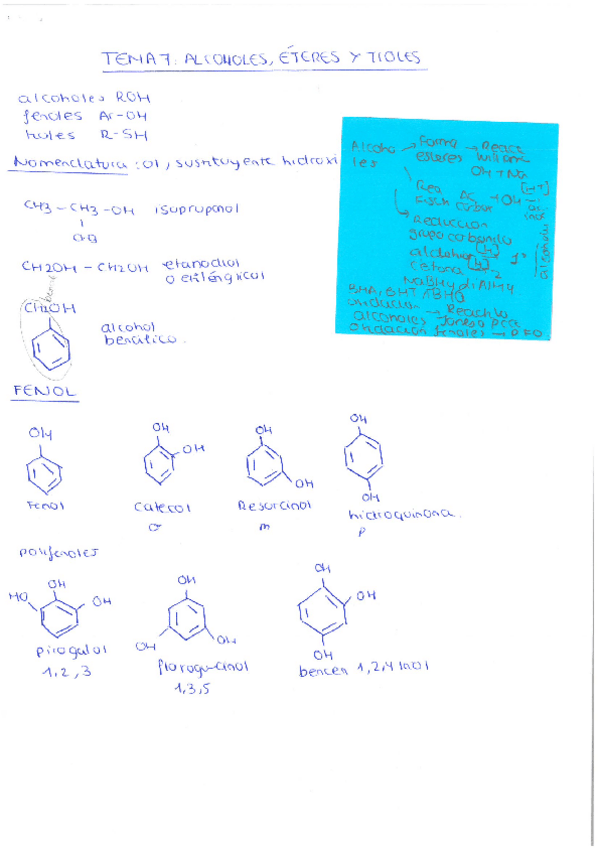 TEMA 7: ALCOHOLES, ÉTERES Y TIOLES
alcoholes ROH
fenoles Ar-OH
tioles R-SH
Nomenclatura: ol, sustituyente hidroxi
CH3 - CH3 - OH isopropanol
CH3
CH2OH - CH2OH etanodiol
o etilénglicol
CH2OH
alcohol
bencílico.
Alcoholes → Forma → React
esteres William
OH + Na
Red
Fisch
Reducción
grupo carbonilo
cetona
NaBH4
BHA, BHT, TBHQ
oxidacion → Reactivo
alcoholes Jones o PCC
oxidación fenoles →
FENOL
OH
Fenol
OH
OH
Catecol
o
OH
OH
Resorcinol
m
OH
OH
hidroquinona.
p
polifenoles
HO
OH
OH
pirogalol
1,2,3
OH
OH
OH
floroglucinol
1,3,5
OH
OH
OH
bencen 1,2,4